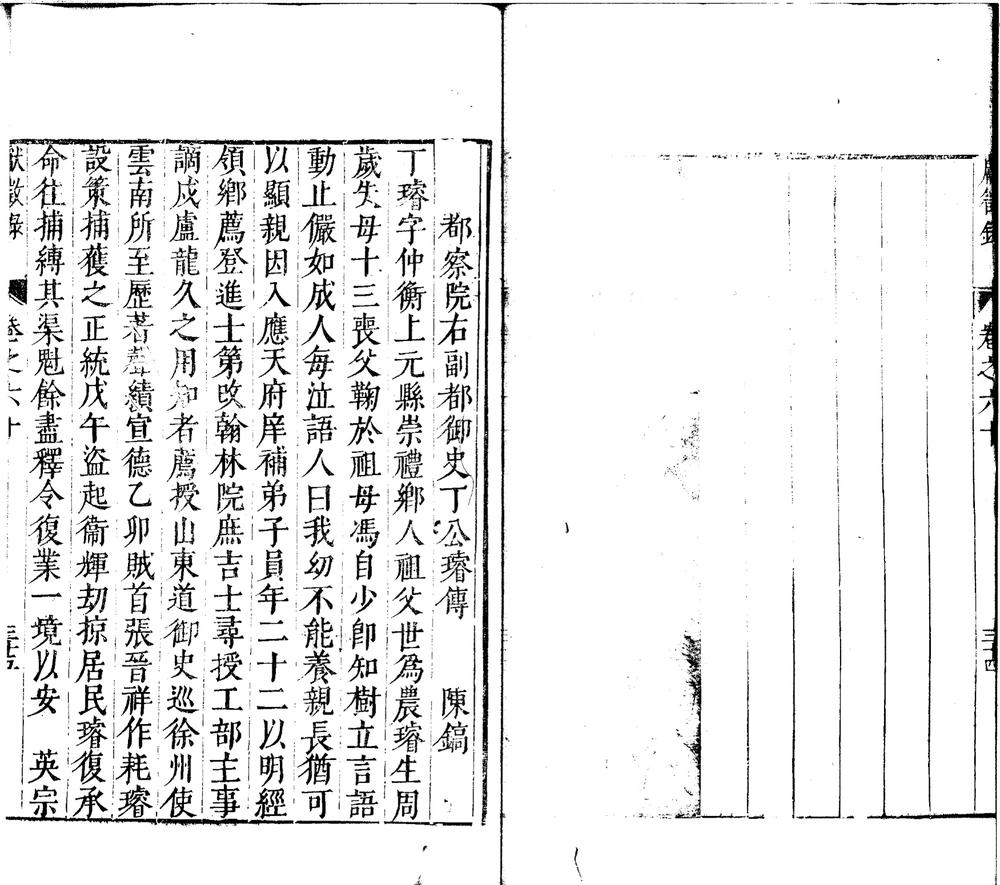 獻徵錄 卷之六十 三十四
都察院右副都御史丁公璿傳 陳鎬
丁璿字仲衡上元縣崇禮鄉人祖父世爲農璿生周
歲失母十三喪父鞠於祖母馮自少卽知樹立言語
動止儼如成人每泣語人曰我幼不能養親長猶可
以顯親因入應天府庠補弟子員年二十二以明經
領鄉薦登進士第改翰林院庶吉士尋授工部主事
謫戍盧龍久之用知者薦授山東道御史巡徐州使
雲南所至歷著聲績宣德乙卯賊首張晉祥作耗璿
設策捕獲之正統戊午盜起衞輝劫掠居民璿復承
命往捕縛其渠魁餘盡釋令復業一境以安 英宗
獻徵錄 卷之六十 三十五